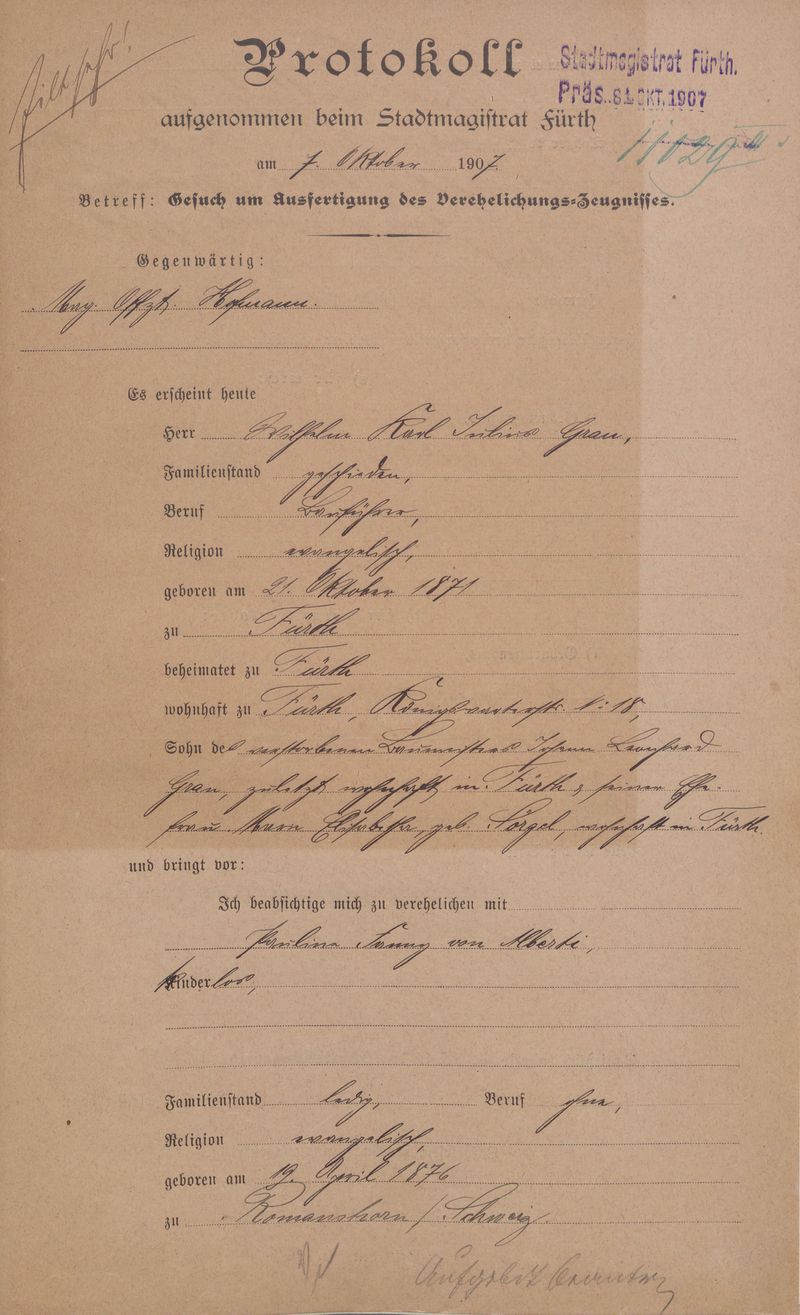 Eilt sehr!
Protokoll
Stadtmagistrat Fürth.
Präs. 8. OKT. 1907
aufgenommen beim Stadtmagiſtrat Fürth
am 7. Oktober 1907.
Betreff: Geſuch um Ausfertigung des Verehelichungs-Zeugniſſes.
Gegenwärtig:
Mag. Offzt. Hofmann.
Es erſcheint heute
Herr Wilhelm Karl Julius Grau,
Familienſtand geschieden,
Beruf Bauführer,
Religion evangelisch,
geboren am 21. Oktober 1871
zu Fürth
beheimatet zu Fürth
wohnhaft zu Fürth, Königswarterstr. No 18,
Sohn des verstorbenen Baumeisters Johann Leonhard
Grau, zuletzt wohnhaft in Fürth & seiner Ehe-
frau Elisabetha, geb. Sörgel, wohnhaft in Fürth
und bringt vor:
Ich beabſichtige mich zu verehelichen mit
Pauline Fanny von Alberti,
kinderlos,
Familienſtand ledig, Beruf ohne,
Religion evangelisch,
geboren am 19. April 1876
zu Romanshorn / Schweiz.